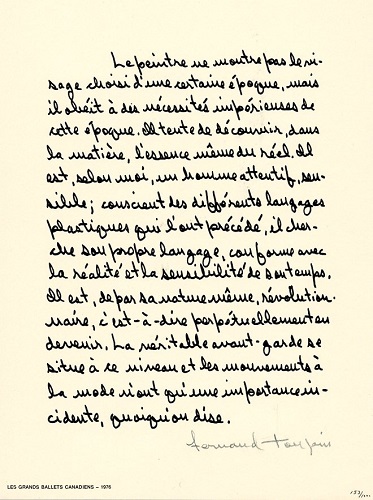 Le peintre ne montre pas le vi-
sage choisi d'une certaine époque, mais
il obéit à des nécessités impérieuses de
cette époque. Il tente de découvrir, dans
la matière, l'essence même du réel. Il
est, selon moi, un homme attentif, sen-
sible; conscient des différents langages
plastiques qui l'ont précédé, il cher-
che son propre langage, conforme avec
la réalité et la sensibilité de son temps.
Il est, de par sa nature même, révolution-
naire, c'est-à-dire perpétuellement en
devenir. La véritable avant-garde se
situe à ce niveau et les mouvements à
la mode n'ont qu'une importance in-
cidente, quoiqu'on dise.
Fernand Toupin
LES GRANDS BALLETS CANADIENS – 1976